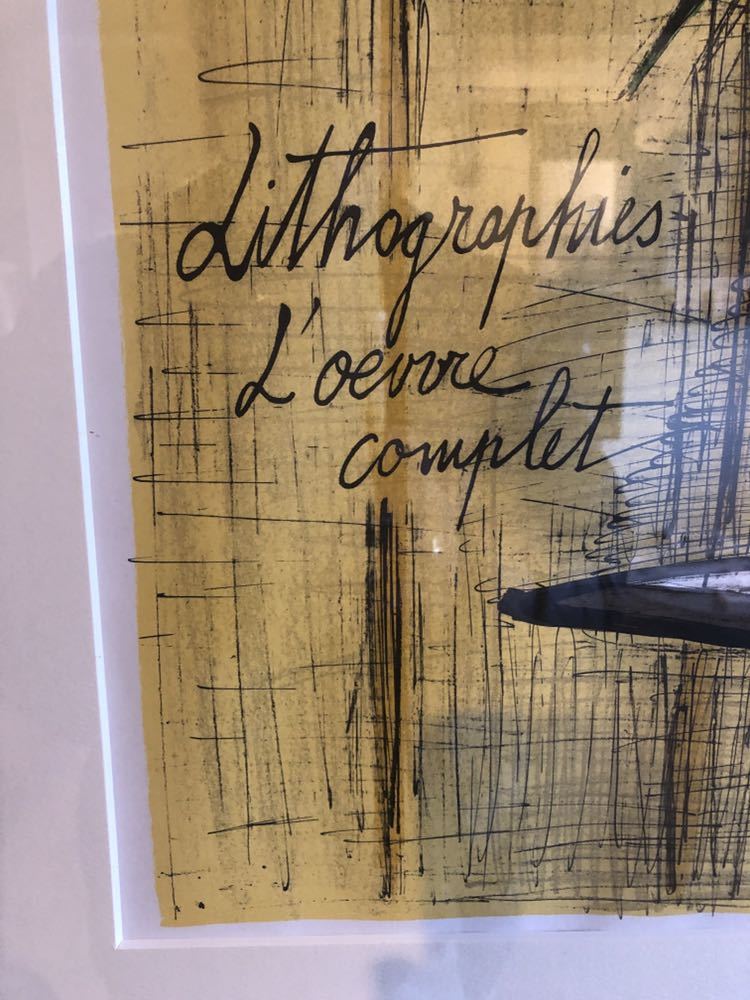 Lithographies
L'oeuvre
complet